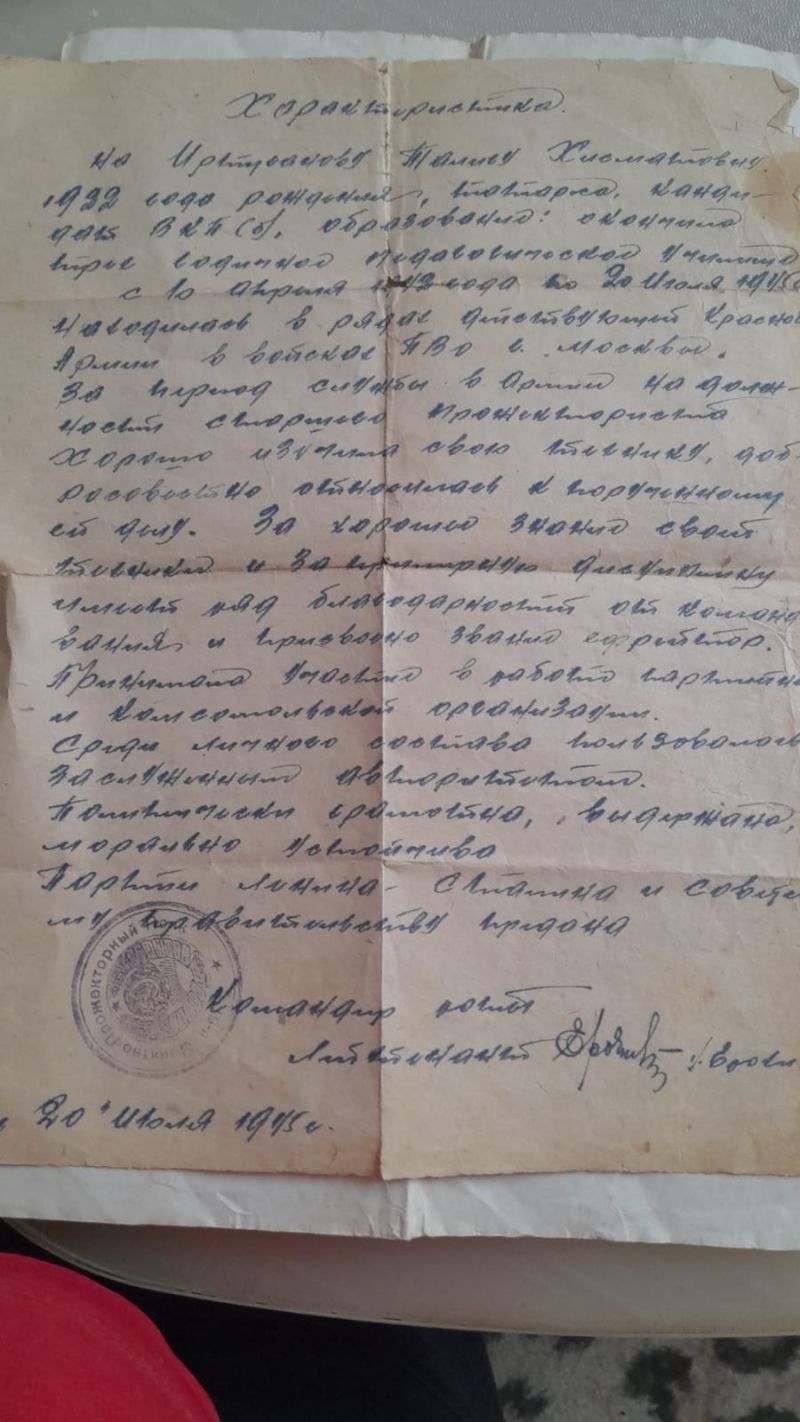 Характеристика.
на Иртуганову Талису Хисматовну
1922 года рождения, татарка, канди-
дат ВКП(б), образование: окончила
трех годичное педагогическое училище
с 10 апреля 1942 года по 20 Июля 1945г
находилась в рядах действующей Красной
Армии в войсках ПВО г. Москвы.
За период службы в Армии на долж-
ности старшего прожекториста
хорошо изучила свою технику, доб-
росовестно относилась к порученному
ей делу. За хорошее знание своей
техники и за примерную дисциплину
имеет ряд благодарностей от командо
вания и присвоено звание ефрейтор.
Принимала участие в работе партийной
и комсомольской организации.
Среди личного состава пользовалась
заслуженным авторитетом.
Политически грамотна, выдержана,
морально устойчива
Партии Ленина - Сталина и советско
му правительству предана
Командир роты
Лейтенант
20 Июля 1945 г.
Зенитно-Прожекторный